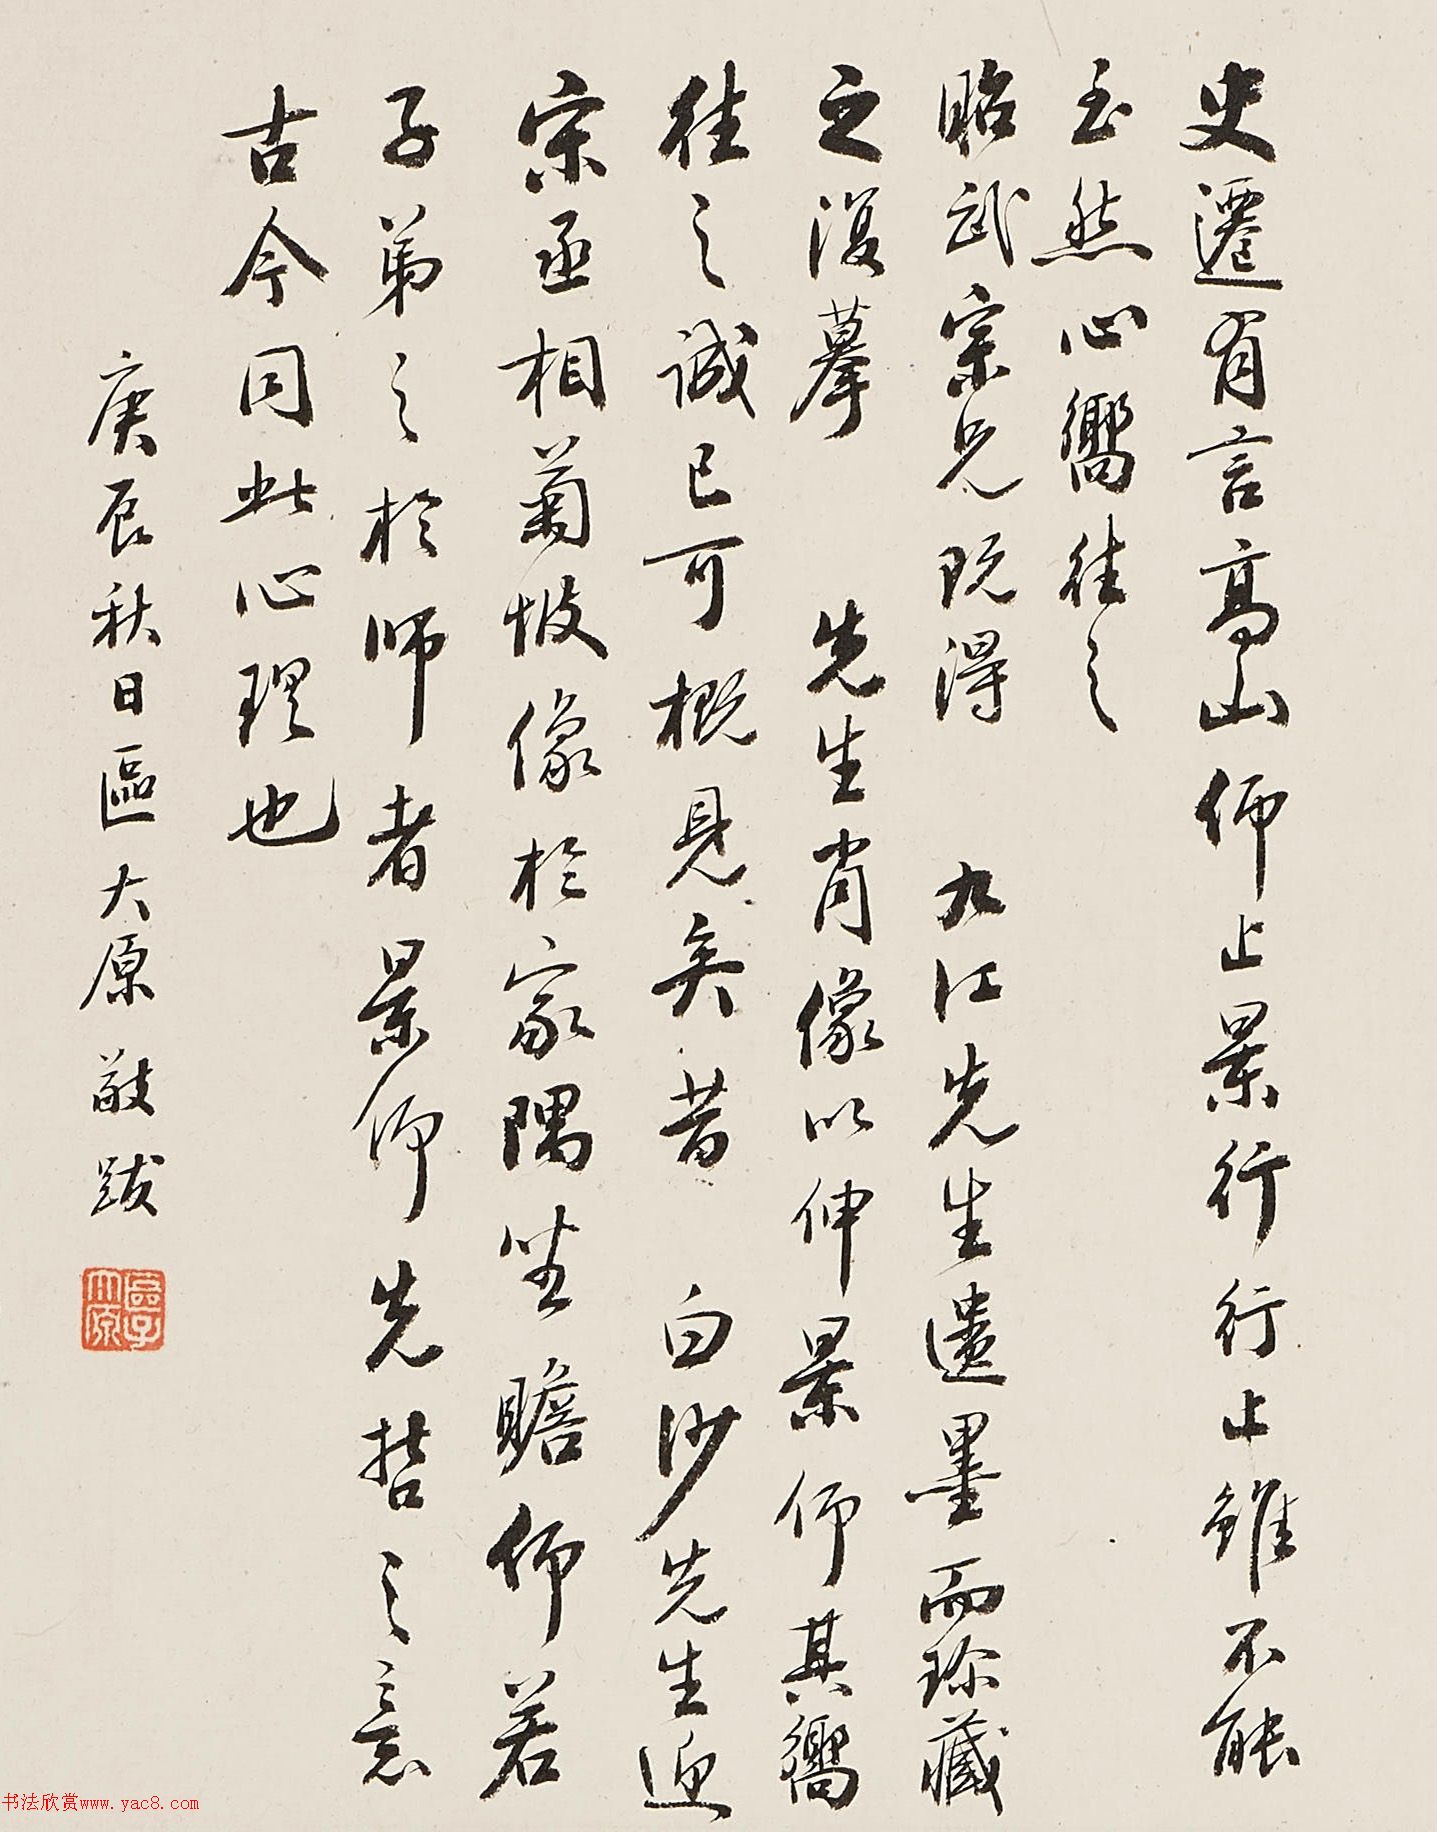 史遷有言高山仰止景行行止雖不能
至然心嚮往之
昭武宗兄既得　九江先生遺墨而珍藏
之復摹　先生肖像以伸景仰其嚮
往之誠已可概見矣昔　白沙先生迎
宋丞相菊坡像於家隅坐瞻仰若
子弟之於師者景仰先哲之意
古今同此心理也
庚辰秋日區大原敬跋
區大原
书法欣赏www.yac8.com